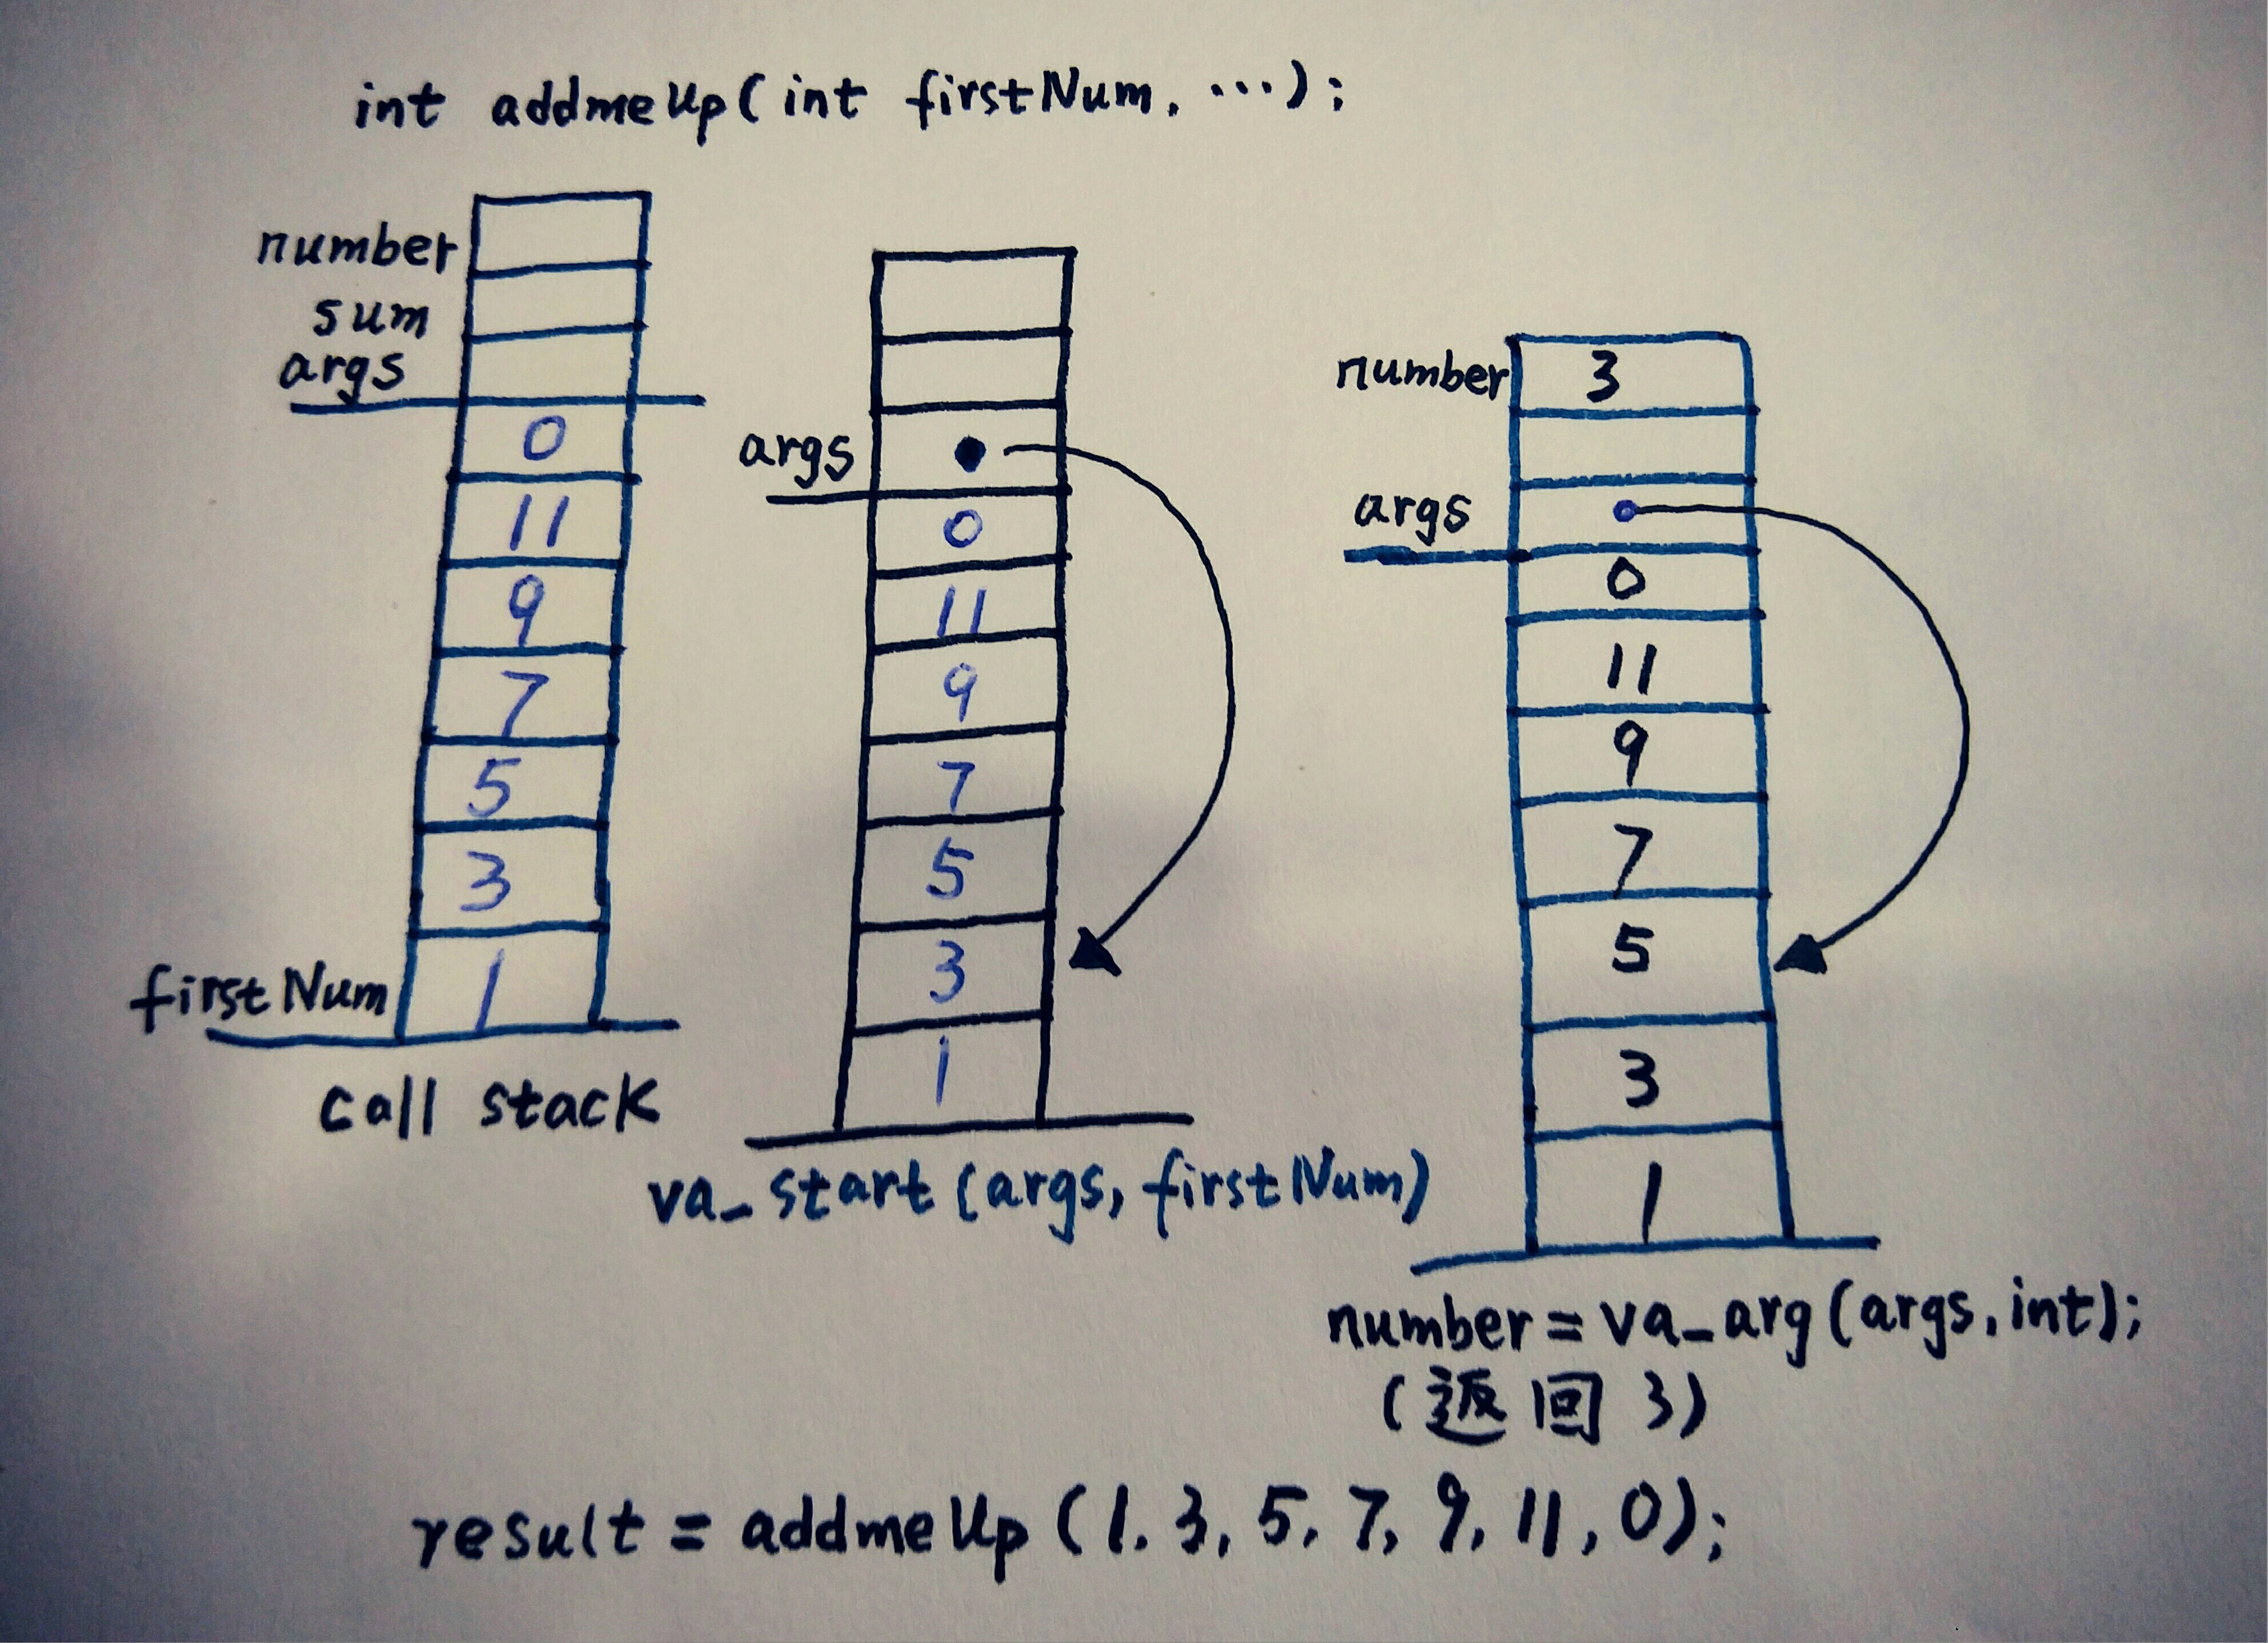 int addmeUp(int firstNum, ...);
number
sum
args
0
11
9
7
5
3
firstNum 1
call stack
args
0
11
9
7
5
3
1
va_start(args, firstNum)
number 3
args
0
11
9
7
5
3
1
number = va_arg(args, int);
(返回 3)
result = addmeUp(1, 3, 5, 7, 9, 11, 0);